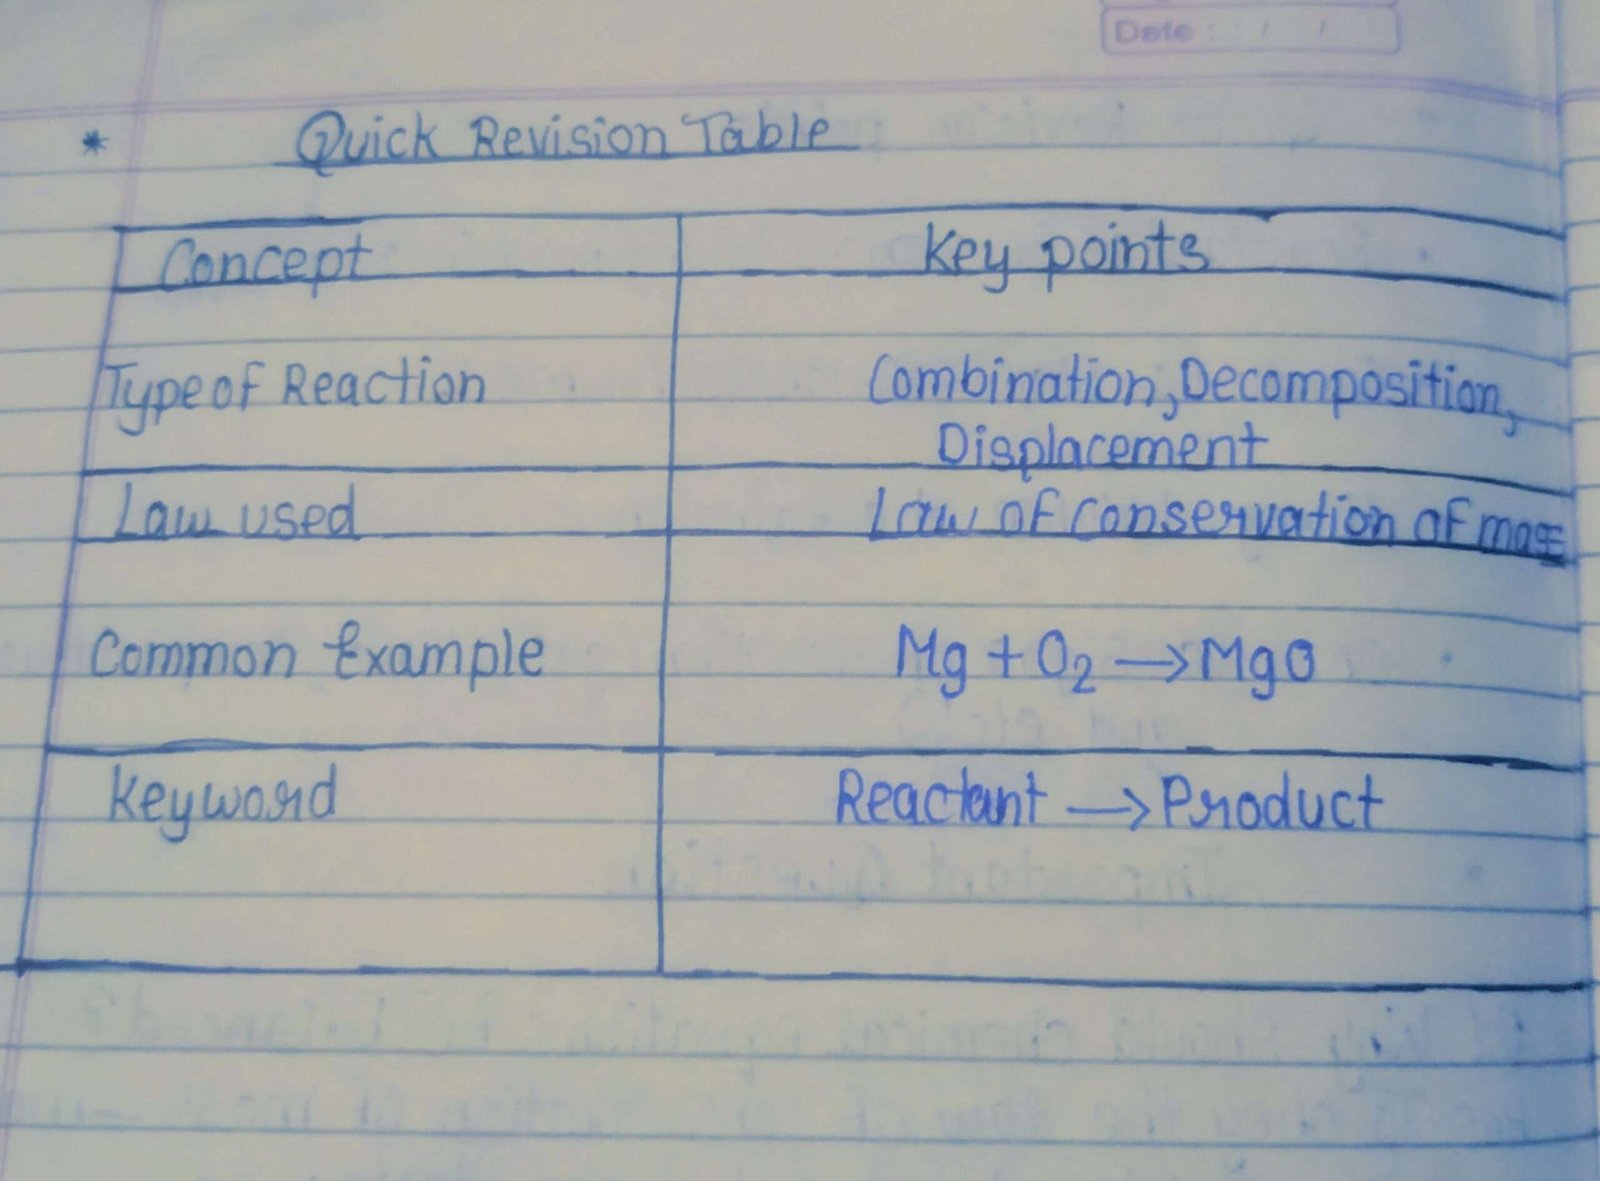 Date : / /
* Quick Revision Table
Concept Key points
Type of Reaction Combination, Decomposition,
Displacement
Law used Law of conservation of mass
Common Example Mg + O₂ → MgO
Keyword Reactant → Product